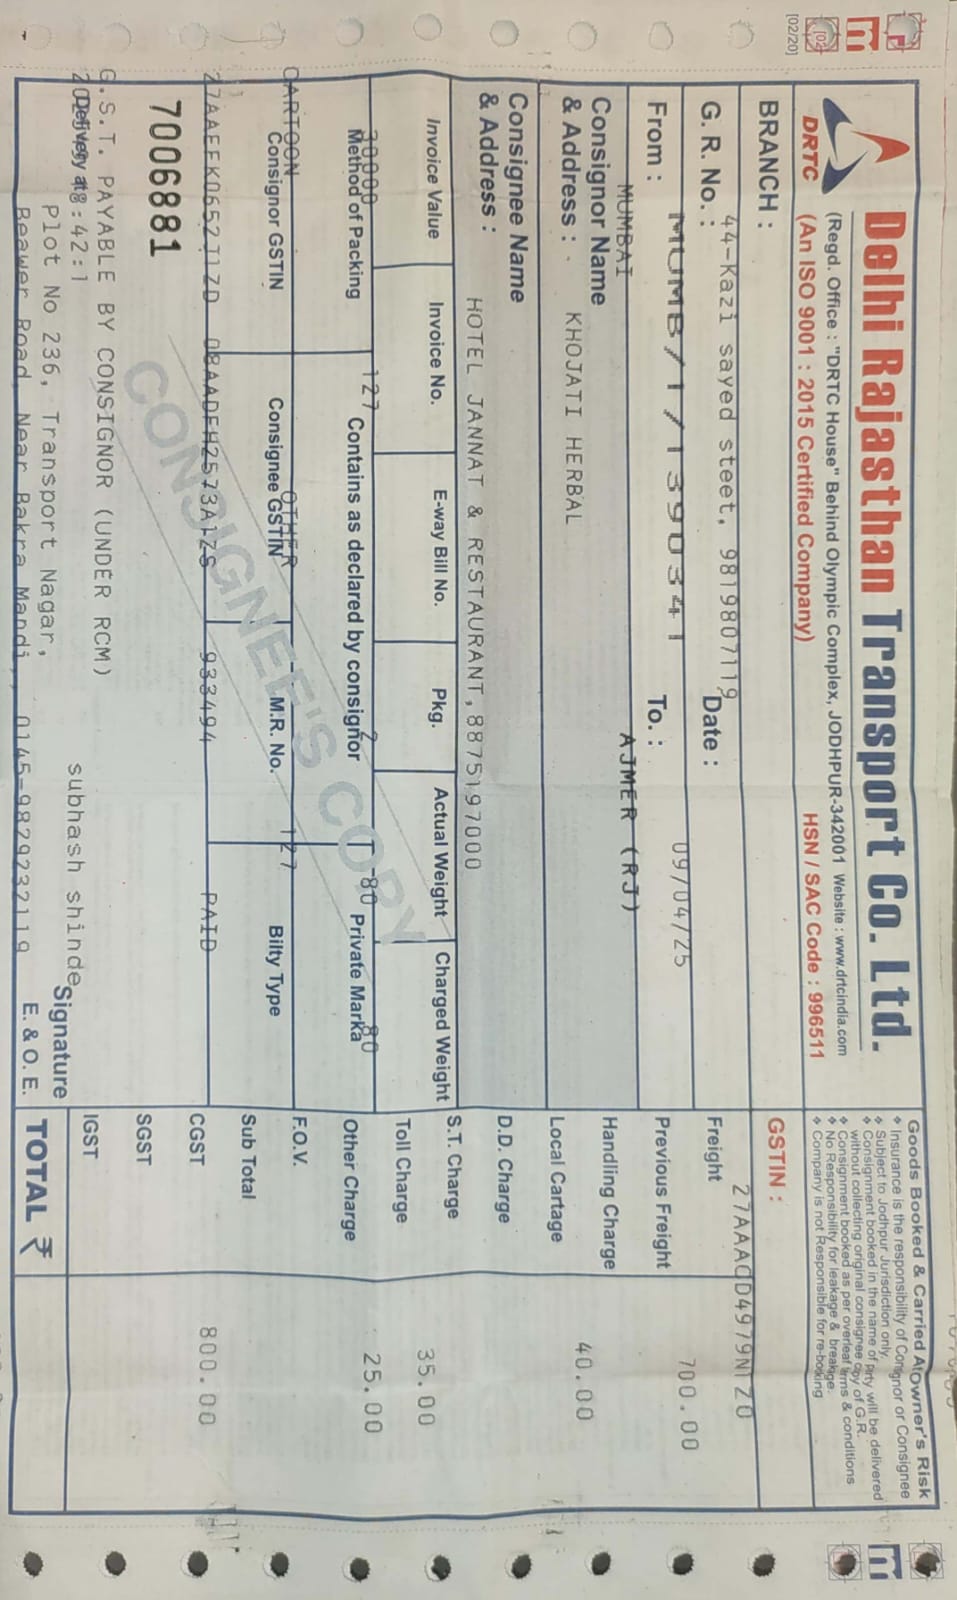 [02/20]
DRTC
Delhi Rajasthan Transport Co. Ltd.
(Regd. Office : "DRTC House" Behind Olympic Complex, JODHPUR-342001 Website : www.drtcindia.com
(An ISO 9001 : 2015 Certified Company)
HSN / SAC Code : 996511
Goods Booked & Carried At Owner's Risk
❖ Insurance is the responsibility of Consignor or Consignee
❖ Subject to Jodhpur Jurisdiction only.
❖ Consignment booked in the name of Party will be delivered
without collecting original consignee copy of G.R.
❖ Consignment booked as per overleaf terms & conditions
❖ No Responsibility for leakage & breakage.
❖ Company is not Responsible for re-booking
BRANCH :
44-Kazi sayed steet, 9819807119
GSTIN :
27AAACD4979N1Z0
G. R. No. :
MUMB/1/1390341
Date :
09/04/25
From :
MUMBAI
To. :
AJMER (RJ)
Consignor Name
& Address :
KHOJATI HERBAL
Consignee Name
& Address :
HOTEL JANNAT & RESTAURANT, 8875197000
Invoice Value Invoice No. E-way Bill No. Pkg. Actual Weight Charged Weight
30000 127 2 T-80 80
Method of Packing Contains as declared by consignor Private Marka
CARTOON OTHER - 127
Consignor GSTIN Consignee GSTIN M.R. No. Bilty Type
27AAEFK0652J1ZD 08AADFH2573A1ZS 933494 PAID
CONSIGNEE'S COPY
7006881
G.S.T. PAYABLE BY CONSIGNOR (UNDER RCM)
Delivery at :
Plot No 236, Transport Nagar,
Beawer Road, Near Bakra Mandi,, 0145-9829232119
subhash shinde
Signature
E. & O. E.
Freight 700.00
Previous Freight
Handling Charge 40.00
Local Cartage
D.D. Charge
S.T. Charge 35.00
Toll Charge
Other Charge 25.00
F.O.V.
Sub Total 800.00
CGST
SGST
IGST
TOTAL ₹